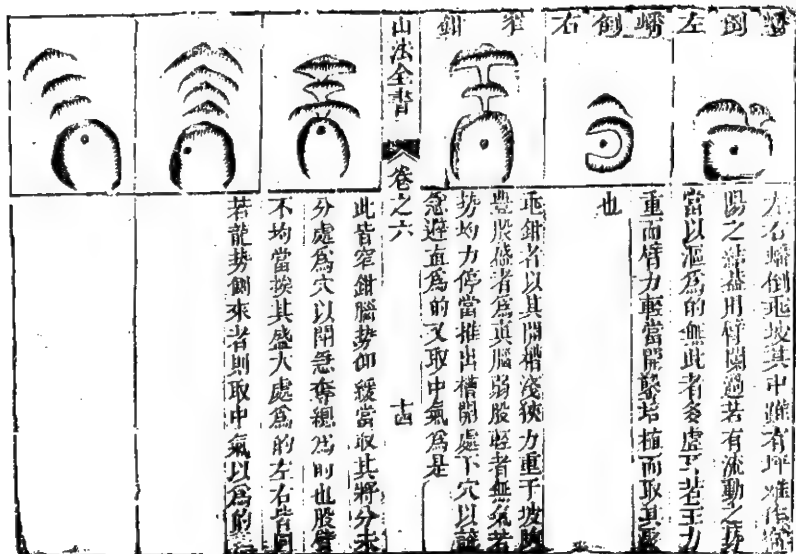 蟠倒左
蟠倒右
窄鉗
左右蟠倒乖坡其中雖有坪
陽之結益用臂闌過若有流動之
當以漚為的無此者多虛若主力
重而臂力輕當開鑿培植而取其
也
乖鉗者以其開槽淺狹力重于坡
豊股盛者為真腦弱股輕者無氣若
勢均力停當推出槽開處下穴以
急避直為的又取中氣為是
山法全書
卷之六
十四
此皆窄鉗腦勢仰緩當取其將分未
分處為穴以開急奪緦為的也股臂
不均當挨其盛大處為的左右皆同
若龍勢側來者則取中氣以為的